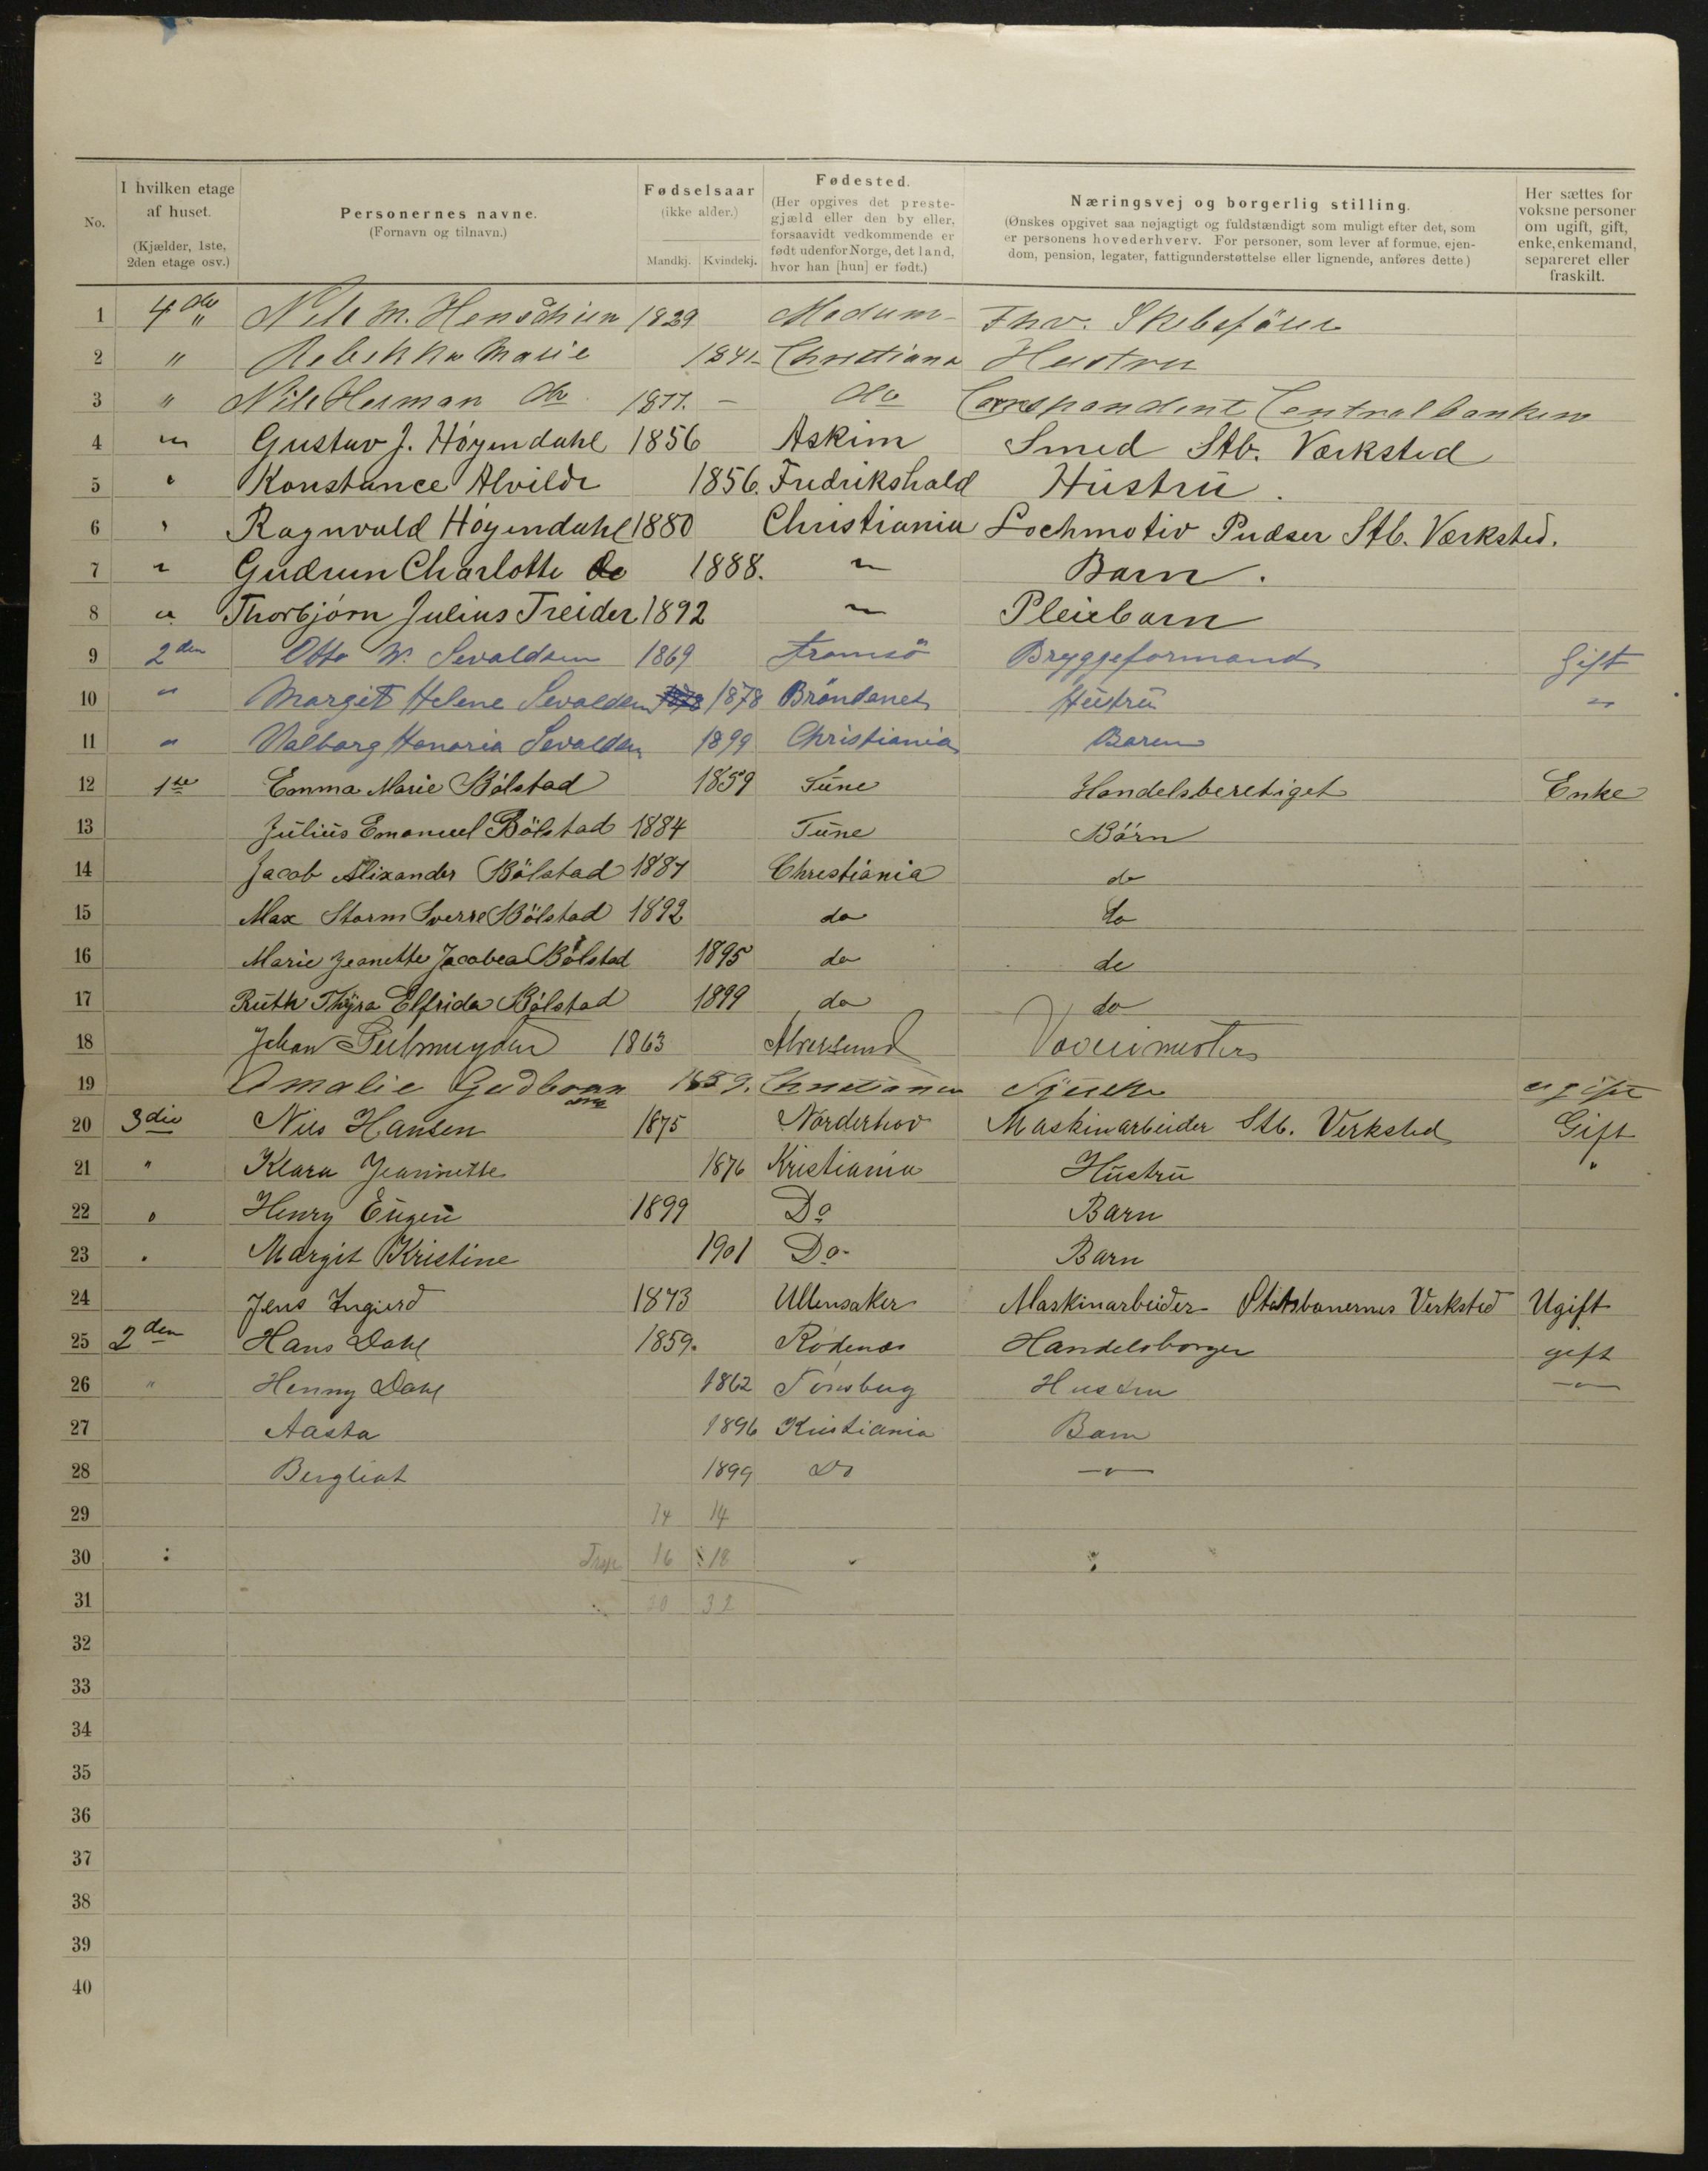 No.
I hvilken etage af huset.
(Kjælder, 1ste, 2den etage osv.)
Personernes navne.
(Fornavn og tilnavn.)
Fødselsaar
(ikke alder.)
Mandkj. Kvindekj.
Fødested.
(Her opgives det prestegjæld eller den by eller, forsaavidt vedkommende er født udenfor Norge, det land, hvor han [hun] er født.)
Næringsvej og borgerlig stilling.
(Ønskes opgivet saa nøjagtigt og fuldstændigt som muligt efter det, som er personens hovederhverv. For personer, som lever af formue, ejendom, pension, legater, fattigunderstøttelse eller lignende, anføres dette)
Her sættes for voksne personer om ugift, gift, enke, enkemand, separeret eller fraskilt.
1 4 Nils M. 1829 Modum Fhv. Skibsförer
2 " Rebekka Marie 1841 Christiana Hustru
3 " Nils Herman do 1877. - do Correspondent Centralbanken
4 " Gustav J. Höyendahl 1856 Askim Smed Stb. Værksted
5 " Konstance Alvilde 1856. Fredrikshald Hustru.
6 " Ragnvald Höyendahl 1880 Christiania Lochmotiv Pudser Stb. Værksted.
7 " Gudrun Charlotte do 1888. " Barn.
8 " Thorbjörn Julius Treider 1892 " Pleiebarn
9 2den Otto W. Sevaldsen 1869 Tromsö Bryggeformand Gift
10 " Margit Helene Sevaldsen 1878 Hustru "
11 " Valborg Honoria Sevaldsen 1899 Christiania Baren
12 1ste Emma Marie Bölstad 1859 Tune Handelsberetiget Enke
13 Julius Emanuel Bölstad 1884 Tune Börn
14 Jacob Alixander Bölstad 1887 Christiania do
15 Max Storm Sverre Bölstad 1892 do do
16 Marie Jeanette Jacobea Bölstad 1895 do do
17 Ruth Thyra Elfrida Bölstad 1899 do do
18 Johan 1863 Alversund
19 Amalie 1859. Christiania ugift
20 3die Nils Hansen 1875 Norderhov Maskinarbeider Stb. Verksted Gift
21 " Klara Jeannette 1876 Kristiania Hustru "
22 " Henry Eugen 1899 Do Barn
23 " Margit Kristine 1901 Do Barn
24 Jens Ingierd 1873 Ullensaker Maskinarbeider Statsbanernes Verksted Ugift
25 2den Hans Dahl 1859. Rödenes Handelsborger gift
26 " Henny Dahl 1862 Tönsberg Hustru -"-
27 Aasta 1896 Kristiania Barn
28 Bergliot 1899 Do -"-
29 14 14
30 16 18
31 30 32
32
33
34
35
36
37
38
39
40